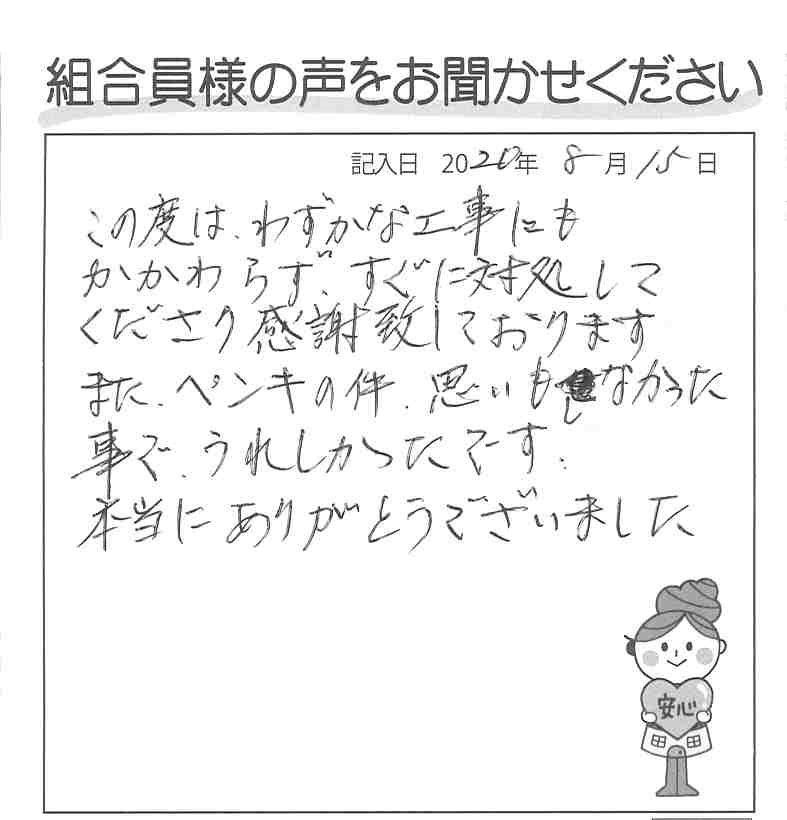 組合員様の声をお聞かせください
記入日 2020年 8月15日
この度は、わずかな工事にも
かかわらず、すぐに対処して
くださり感謝致しております
また、ペンキの件、思いもしなかった
事で、うれしかったです。
本当にありがとうございました
安心